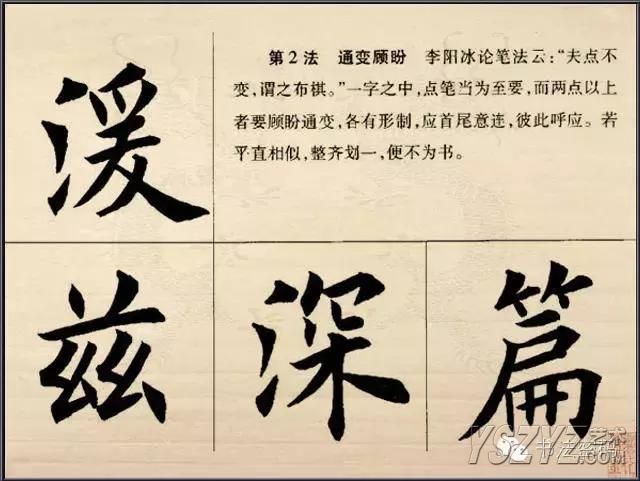 湲
第2法 通变顾盼 李阳冰论笔法云：“夫点不
变，谓之布棋。”一字之中，点笔当为至要，而两点以上
者要顾盼通变，各有形制，应首尾意连，彼此呼应。若
平直相似，整齐划一，便不为书。
兹
深
篇
YSZYZ艺术
.COM
书法密码